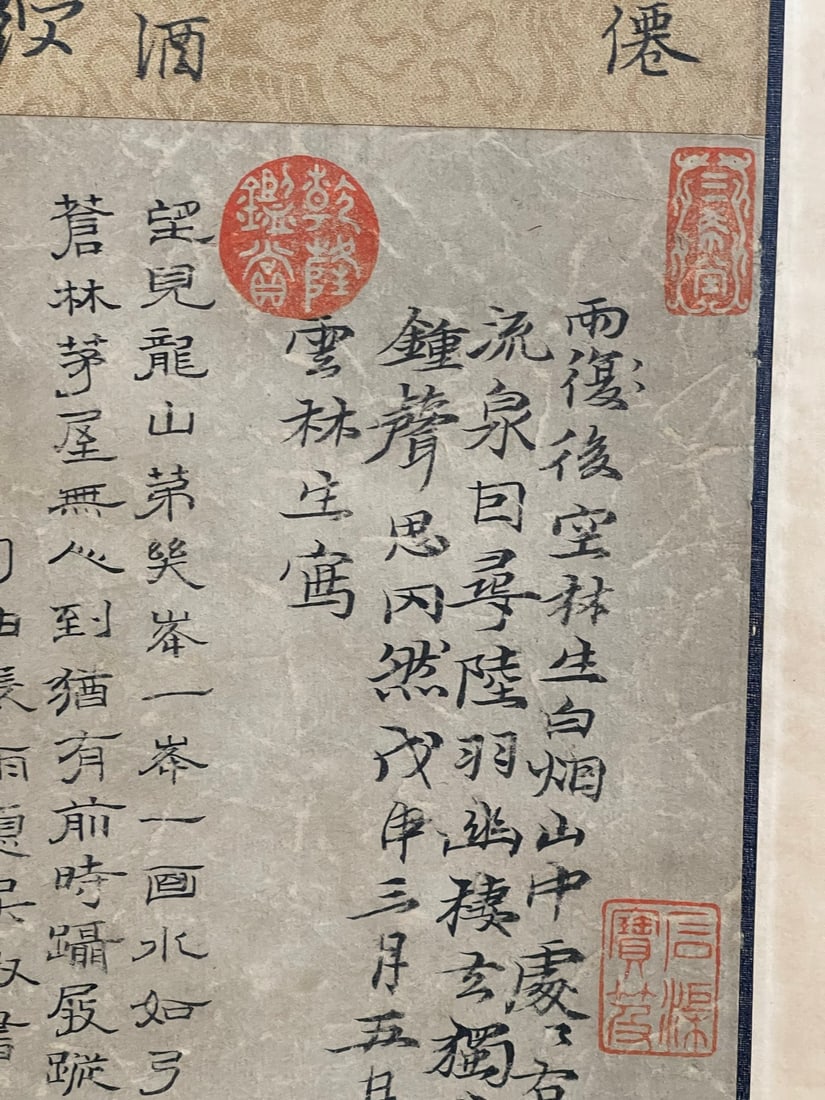 僊
酒
三希堂
雨復後空林生白烟山中處〻有
流泉因尋陸羽幽棲去獨
鍾聲思罔然戊申三月五日
雲林生寫
乾隆鑑賞
石渠寶笈
望見龍山第幾峯一峯一面水如弓
蒼林茅屋無人到猶有前時躡屐蹤